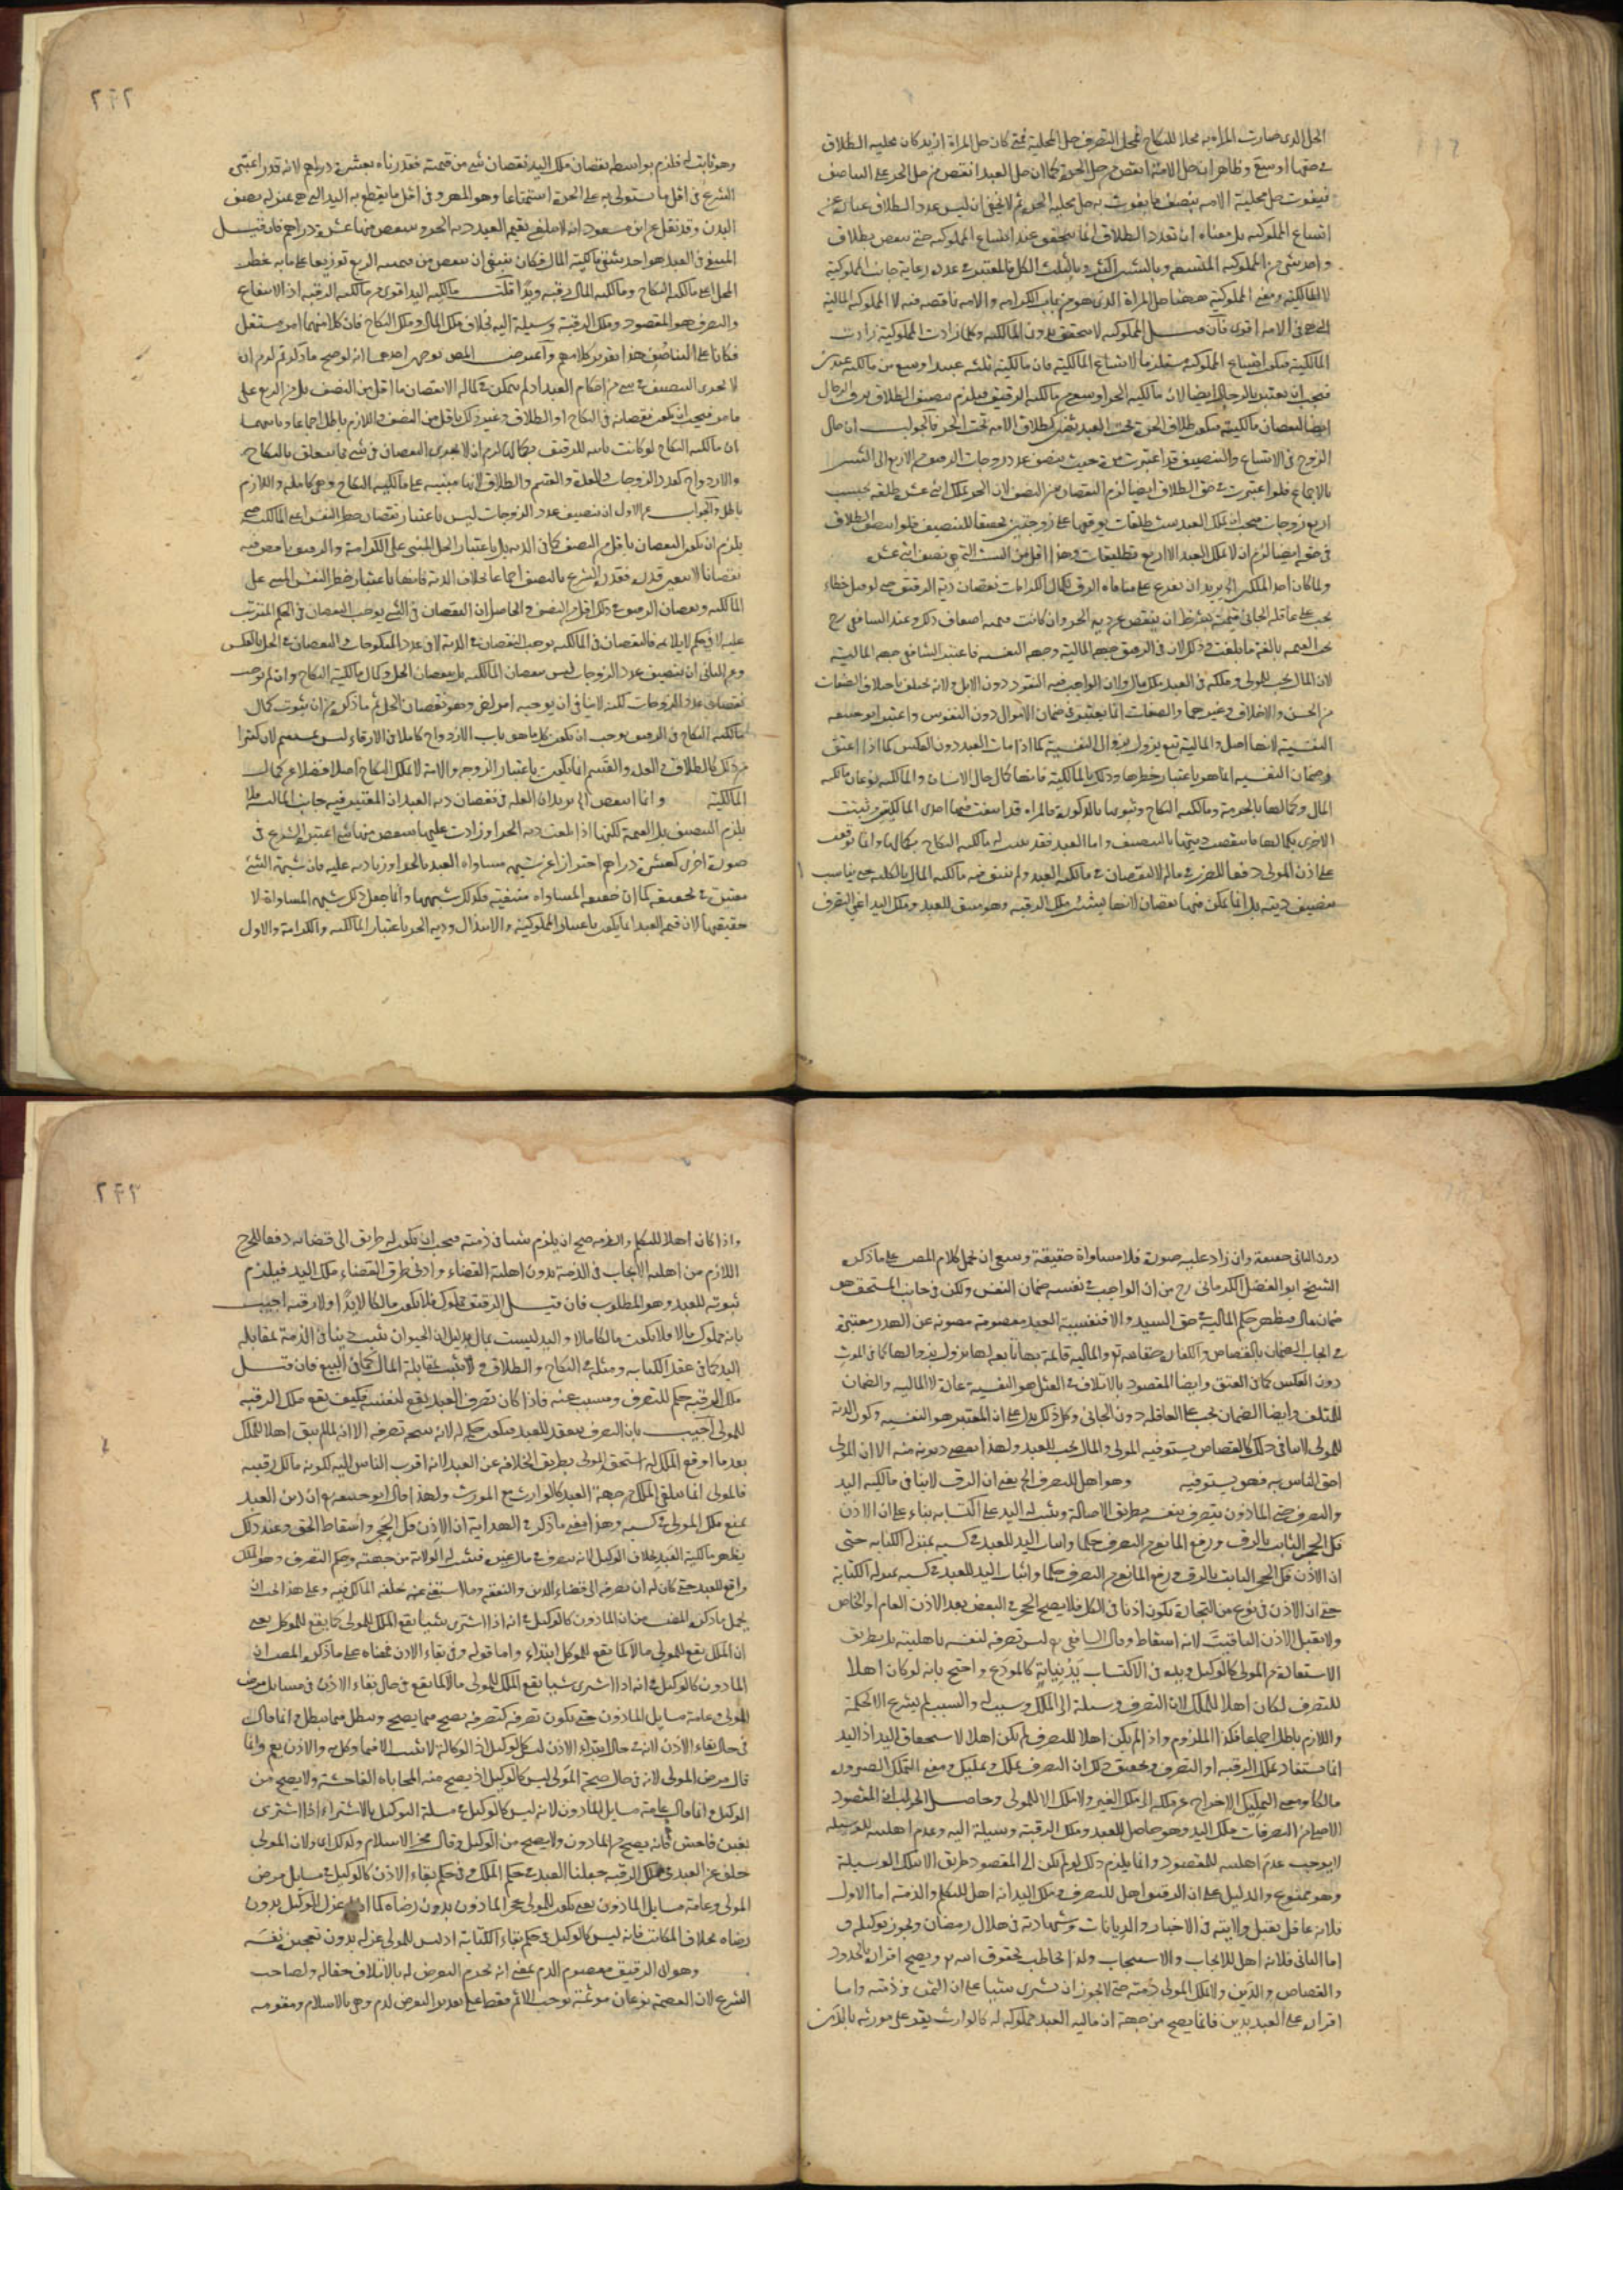 الحل الذى صارت المراة به محلا للنكاح فمحل التصرف حل المحلية فمتى كان حل المراة ازيد كان محلية الطلاق
فى حقها اوسع وظاهر ان حل الامة انقص من حل الحرة كما ان حل العبد انقص من حل الحر على التناصف
فيفوت حل محلية الامة بنصف ما يفوت به حل محلية الحرة ثم لا يخفى ان ليس عدد الطلاق عبارة عن
اتساع المملوكية بل معناه ان تعدد الطلاق انما يتحقق عند اتساع المملوكية حتى ينقص بطلاق
واحد شى من المملوكية المتسعة وبالثنتين اكثر وبالثلث الكل فالمعتبر فى عدده رعاية جانب المملوكية
لا المالكية ومعنى المملوكية ههنا حل المراة الذى هو من باب الكرامة والامة ناقصة فيه لا المملوكية المالية
التى هى فى الامة اقوى فان قيل المملوكية لا تتحقق بدون المالكية وكلما زادت المملوكية زادت
المالكية فيكون اتساع المملوكية مستلزما لاتساع المالكية فان مالكية ثلثة عبيد اوسع من مالكية عبدين
فيجب ان يعتبر بالرجال ايضا لان مالكية الحر اوسع من مالكية الرقيق فيلزم تنصيف الطلاق برق الرجال
ايضا لنقصان مالكيته فيكون طلاق الحرة تحت العبد ثنتين كطلاق الامة تحت الحر فالجواب ان حال
الزوج فى الاتساع والتنصيف قد اعتبرت مرة حيث ينصف عدد زوجات الرقيق من الاربع الى الثنتين
بالاجماع فلو اعتبرت فى حق الطلاق ايضا لزم النقصان من النصف لان الحر يملك اثنى عشر طلقة بحسب
اربع زوجات فيجب ان يملك العبد ست طلقات يوقعها على زوجتين تحقيقا للتنصيف فلو انتصف الطلاق
فى حقه ايضا لزم ان لا يملك العبد الا اربع تطليقات وهذا اقل من الست التى هى نصف اثنى عشر
يجب على عاقلة الجانى قيمته بشرط ان ينقص عن دية الحر وان كانت قيمته اضعاف ذلك وعند الشافعى رح
تجب القيمة بالغة ما بلغت وذلك لان فى الرقيق جهة المالية وجهة النفسية فاعتبر الشافعى جهة المالية
لان المال يجب للمولى وملكه فى العبد ملك مال ولان الواجب فيه النقود دون الابل ولانه يختلف باختلاف الصفات
من الحسن والاخلاق وغيرهما والصفات انما يعتبر فى ضمان الاموال دون النفوس واعتبر ابو حنيفة
النفسية لانها اصل والمالية تبع يزول بزوال النفسية كما اذا مات العبد دون العكس كما اذا اعتق
وضمان النفسية انما هو باعتبار خطرها وذلك بالمالكية فانها كمال حال الانسان والمالكية نوعان مالكية
المال وكمالها بالحرية ومالكية النكاح وثبوتها بالذكورة فالمراة قد انتفت فيها احدى المالكيتين وثبتت
الاخرى بكمالها فانتقصت ديتها بالتنصيف واما العبد فقد ثبت له مالكية النكاح بكمالها وانما توقف
على اذن المولى دفعا للضرر فى ماله لا لنقصان فى مالكية العبد ولم ينتف فيه مالكية المال بالكلية حتى يناسب
تنصيف ديته بل انما تمكن فيها نقصان لانها بشيئين ملك الرقبة وهو منتف للعبد وملك اليد اعنى التصرف
٢٤٢
وهو ثابت له فلزم بواسطة نقصان ملك اليد نقصان شى من قيمته فقدرناه بعشرة دراهم لانه قدر اعتبره
الشرع فى اقل ما يستولى به على الحرة استمتاعا وهو المهر وفى اقل ما يقطع به اليد التى هى بمنزلة نصف
البدن وقد نقل عن ابن مسعود انه لا يبلغ بقيمة العبد دية الحر وينقص منها عشرة دراهم فان قيل
المنتفى فى العبد هو احد شقى مالكية المال فكان ينبغى ان ينقص من قيمته الربع توزيعا على ما به خطر
المحل اعنى مالكية النكاح ومالكية المال رقبة ويدا قلت مالكية اليد اقوى من مالكية الرقبة اذ الانتفاع
والتصرف هو المقصود وملك الرقبة وسيلة اليه بخلاف ملك المال وملك النكاح فان كلا منهما امر مستقل
فكانا على التناصف هذا تقرير كلامهم واعترض المص بوجهين احدهما انه لو صح ما ذكرتم لزم ان
لا يجرى التنصيف فى شى من احكام العبد اذ لم يتمكن فى كماله الا نقصان ما اقل من النصف بل من الربع على
ما مر فيجب ان يكون نقصانه فى النكاح او الطلاق وغير ذلك باقل من النصف واللازم باطل اجماعا وثانيهما
ان مالكية النكاح لو كانت ثابتة للرقيق بكمالها لزم ان لا يجرى النقصان فى شى مما يتعلق بالنكاح
والازدواج كعدد الزوجات والعدة والقسم والطلاق لانها مبنية على مالكية النكاح وهى كاملة واللازم
باطل والجواب عن الاول ان تنصيف عدد الزوجات ليس باعتبار نقصان خطر النفس اعنى المالكية حتى
يلزم ان يكون النقصان باقل من النصف كما فى الدية بل باعتبار الحل المبنى على الكرامة والرقيق ناقص فيه
نقصانا لا يتعين قدره فقدره الشرع بالنصف اجماعا بخلاف الدية فانها باعتبار خطر النفس المبنى على
المالكية ونقصان الرقيق فى ذلك اقل من النصف والحاصل ان النقصان فى الشى يوجب النقصان فى الحكم المترتب
عليه لا فى حكم لا يلايمه فالنقصان فى المالكية يوجب النقصان فى الدية لا فى عدد المنكوحات والنقصان فى الحل بالعكس
وعن الثانى ان تنصيف عدد الزوجات ليس بنقصان المالكية بل بنقصان الحل وكمال مالكية النكاح وان لم يوجب
نقصان عدد الزوجات لكنه لا ينافى ان يوجبه امر اخر وهو نقصان الحل ثم ما ذكره من ان ثبوت كمال
مالكية النكاح فى الرقيق يوجب ان يكون كل ما هو باب الازدواج كاملا فى الارقاء ليس بمستقيم لان كثيرا
من ذلك كالطلاق والعدة والقسم انما يكون باعتبار الزوجة والامة لا تملك النكاح اصلا فضلا عن كمال
المالكية وانما انتقص اى يريد ان العلة فى نقصان دية العبد ان المعتبر فيه جانب المالية فلا
يلزم التنصيف بل القيمة لكنها اذا بلغت دية الحر او زادت عليها ينقص منها شى اعتبره الشرع فى
صورة اخرى كعشرة دراهم احترازا عن شبهة مساواة العبد بالحر او زيادته عليه فان شبهة الشى
معتبرة فى تحقيقه كما ان حقيقة المساواة منتفية فكذلك شبهتها وانما جعل ذلك شبهة المساواة لا
حقيقتها لان قيمة العبد انما يكون باعتبار المملوكية والابتذال ودية الحر باعتبار المالكية والكرامة والاول
دون الثانى حقيقة وان زاد عليه صورة فلا مساواة حقيقة وينبغى ان يحمل كلام المص على ما ذكره
الشيخ ابو الفضل الكرمانى رح من ان الواجب فى نفسه ضمان النفس ولكن فى جانب المستحق هو
ضمان مال فيظهر حكم المالية فى حق السيد والا فنفسية العبد معصومة مصونة عن الهدر معتبرة
فى ايجاب الضمان بالقصاص والكفارة حقا لله تع والمالية قائمة بها تابعة لها يزول بزوالها كما فى الموت
دون العكس كما فى العتق وايضا المقصود بالاتلاف فى القتل هو النفسية عادة لا المالية والضمان
للمتلف وايضا الضمان يجب على العاقلة دون الجانى وكل ذلك يدل على ان المعتبر هو النفسية وكون الدية
للمولى لا ينافى ذلك كالقصاص يستوفيه المولى والمال يجب للعبد ولهذا يقضى ديونه منه الا ان المولى
احق الناس به فهو يستوفيه وهو اهل للتصرف اى يعنى ان الرق لا ينافى مالكية اليد
والتصرف حتى الماذون يتصرف بنفسه بطريق الاصالة ويثبت له اليد على اكتسابه بناء على ان الاذن
فك الحجر الثابت بالرق ورفع المانع من التصرف حكما واثبات اليد للعبد فى كسبه بمنزلة الكتابة حتى
ان الاذن فك الحجر الثابت بالرق ورفع المانع من التصرف حكما واثبات اليد للعبد فى كسبه بمنزلة الكتابة
حتى ان الاذن فى نوع من التجارة يكون اذنا فى الكل فلا يصح الحجر فى البعض بعد الاذن العام او الخاص
ولا يقبل الاذن التاقيت لانه اسقاط وقال الشافعى رح ليس تصرفه لنفسه باهليته بل بطريق
الاستفادة من المولى كالوكيل ويده فى الاكتساب يد نيابة كالمودع واحتج بانه لو كان اهلا
للتصرف لكان اهلا للملك لان التصرف وسيلة الى الملك وسبب له والسبب لم يشرع الا لحكمه
واللازم باطل اجماعا فكذا الملزوم واذا لم يكن اهلا للتصرف لم يكن اهلا لاستحقاق اليد اذ اليد
انما يستفاد بملك الرقبة او التصرف وتحقيق ذلك ان التصرف تملك وتمليك ومعنى التملك الصيرورة
مالكا ومعنى التمليك الاخراج عن ملكه الى ملك الغير ولا ملك الا للمولى وحاصل الجواب ان المقصود
الاصلى من التصرفات ملك اليد وهو حاصل للعبد وملك الرقبة وسيلة اليه وعدم اهلية للوسيلة
لا يوجب عدم اهلية للمقصود وانما يلزم ذلك لو لم يكن الى المقصود طريق الا تلك الوسيلة
وهو ممنوع والدليل على ان الرقيق اهل للتصرف وملك اليد انه اهل للتكلم والذمة اما الاول
فلانه عاقل يقبل روايته فى الاخبار والديانات وشهادته فى هلال رمضان ويجوز توكيله و
اما الثانى فلانه اهل للايجاب والاستيجاب ولذا يخاطب بحقوق الله تع ويصح اقراره بالحدود
والقصاص والدين ولا يملك المولى ذمته حتى لا يجوز ان يشترى شيئا على ان الثمن فى ذمته واما
اقراره على العبد بدين فانما يصح من جهة ان مالية العبد مملوكة له كالوارث يقر على مورثه بالدين
٢٤٣
واذا كان اهلا للتكلم والذمة صح ان يلزم شيئا فى ذمته فيجب ان يكون له طريق الى قضائه دفعا للحرج
اللازم من اهلية الايجاب فى الذمة بدون اهلية القضاء وادنى طرق القضاء ملك اليد فيلزم
ثبوته للعبد وهو المطلوب فان قيل الرقيق مملوك فلا يكون مالكا لا يدا ولا رقبة اجيب
بانه مملوك مالا فلا يكون مالكا مالا واليد ليست بمال بدليل ان الحيوان يثبت دينا فى الذمة بمقابلة
اليد كما فى عقد الكتابة ومثله فى النكاح والطلاق ولا يثبت بمقابلة المال كما فى البيع فان قيل
ملك الرقبة حكم للتصرف ومسبب عنه فاذا كان تصرف العبد يقع لنفسه فكيف يقع ملك الرقبة
للمولى اجيب بان التصرف ينعقد للعبد فيكون حكمه له لانه نتيجة تصرفه الا انه لما لم يبق اهلا للملك
بعد ما اوقع الملك له استحق المولى بطريق الخلافة عن العبد لانه اقرب الناس اليه لكونه مالك رقبته
فالمولى انما يتلقى الملك من جهة العبد كالوارث مع المورث ولهذا قال ابو حنيفة رح ان دين العبد
يمنع ملك المولى فى كسبه وهذا معنى ما ذكر فى الهداية ان الاذن فك الحجر واسقاط الحق وعند ذلك
يظهر مالكية العبد بخلاف الوكيل لانه يتصرف فى مال غيره فيثبت له الولاية من جهته وحكم التصرف وهو الملك
واقع للعبد حتى كان له ان يصرفه الى قضاء الدين والنفقة وما استغنى عنه خلفه المالك فيه وعلى هذا يجب ان
يحمل ما ذكره المصنف من ان الماذون كالوكيل فى انه اذا اشترى شيئا يقع الملك للمولى كما يقع للموكل يعنى
ان الملك يقع للمولى مآلا كما يقع للموكل ابتداء واما قوله وفى بقاء الاذن فمعناه على ما ذكره المصنف ان
الماذون كالوكيل فى انه اذا اشترى شيئا يقع الملك للمولى مآلا كما يقع فى حال بقاء الاذن فى مسايل مرض
المولى وعامة مسايل الماذون حتى يكون تصرفه كتصرفه يصح فيما يصح ويبطل فيما يبطل وانما قال
فى حال بقاء الاذن لانه فى حال ابتداء الاذن ليس كالوكيل اذ الوكالة لا تثبت الا فيما وكل به والاذن يعم وانما
قال مرض المولى لانه فى حال صحة المولى ليس كالوكيل اذ يصح منه المحاباة الفاحشة ولا يصح من
الوكيل وانما قال عامة مسايل الماذون لانه ليس كالوكيل فى مسئلة التوكيل بالاشتراء اذا اشترى
بغبن فاحش فانه يصح من الماذون ولا يصح من الوكيل وقال فخر الاسلام ولذلك اى ولان المولى
خلف عن العبد فى ملك الرقبة جعلنا العبد فى حكم الملك وفى حكم بقاء الاذن كالوكيل فى مسايل مرض
المولى وعامة مسايل الماذون يعنى يكون للمولى حجر الماذون بدون رضاه كما ان له عزل الوكيل بدون
رضاه بخلاف المكاتب فانه ليس كالوكيل فى حكم بقاء الكتابة اذ ليس للمولى عزله بدون تعجيز نفسه
وهو اى الرقيق معصوم الدم بمعنى انه يحرم التعرض له بالاتلاف حقا له ولصاحب
الشرع لان العصمة نوعان مؤثمة توجب الاثم فقط على تقدير التعرض للدم وهى بالاسلام ومقومة